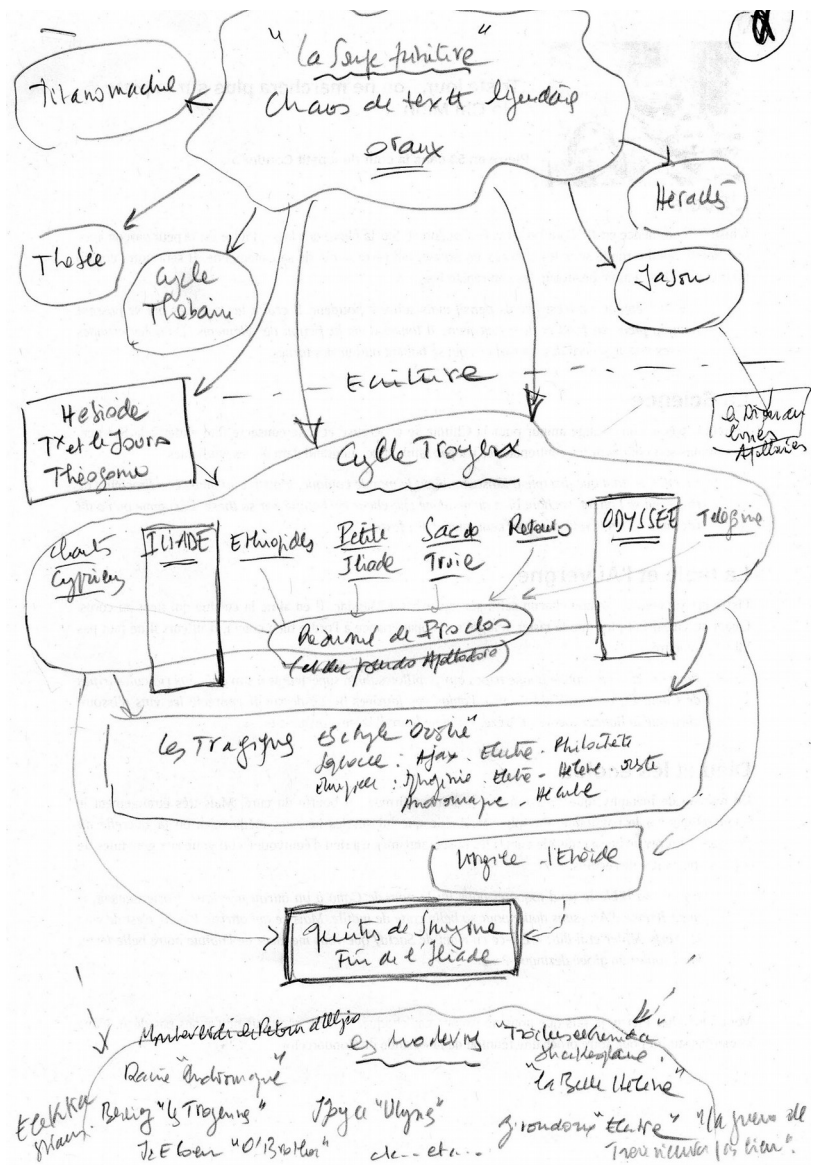 "La Soupe primitive"
Chaos de textes légendaires
oraux
Titanomachie
Héraclès
Thésée
Cycle
Thébain
Jason
Ecriture
Hésiode
Tx et les Jours
Théogonie
Cycle Troyen
Apollonios
Chants
Cypriens
ILIADE
Ethiopides
Petite
Iliade
Sac de
Troie
Retours
ODYSSÉE
Télégonie
Résumé de Proclos
(et du pseudo Apollodore)
Les Tragiques Eschyle "Orestie"
Sophocle : Ajax. Electre. Philoctète
Euripide : Iphigénie. Electre - Hélène. Oreste
Andromaque - Hécube
Virgile - l'Enéide
Quintus de Smyrne
Fin de l'Iliade
Monteverdi di Retour d'Ulysse
Les modernes
"Troilus et Cressida"
Shakespeare.
Racine "Andromaque"
"La Belle Hélène"
Elektra
Strauss.
Berlioz "les Troyens"
Joyce "Ulysse"
Giraudoux "Electre" "la guerre de
Troie n'aura pas lieu".
J. & E. Coen "O'Brother"
etc... etc...